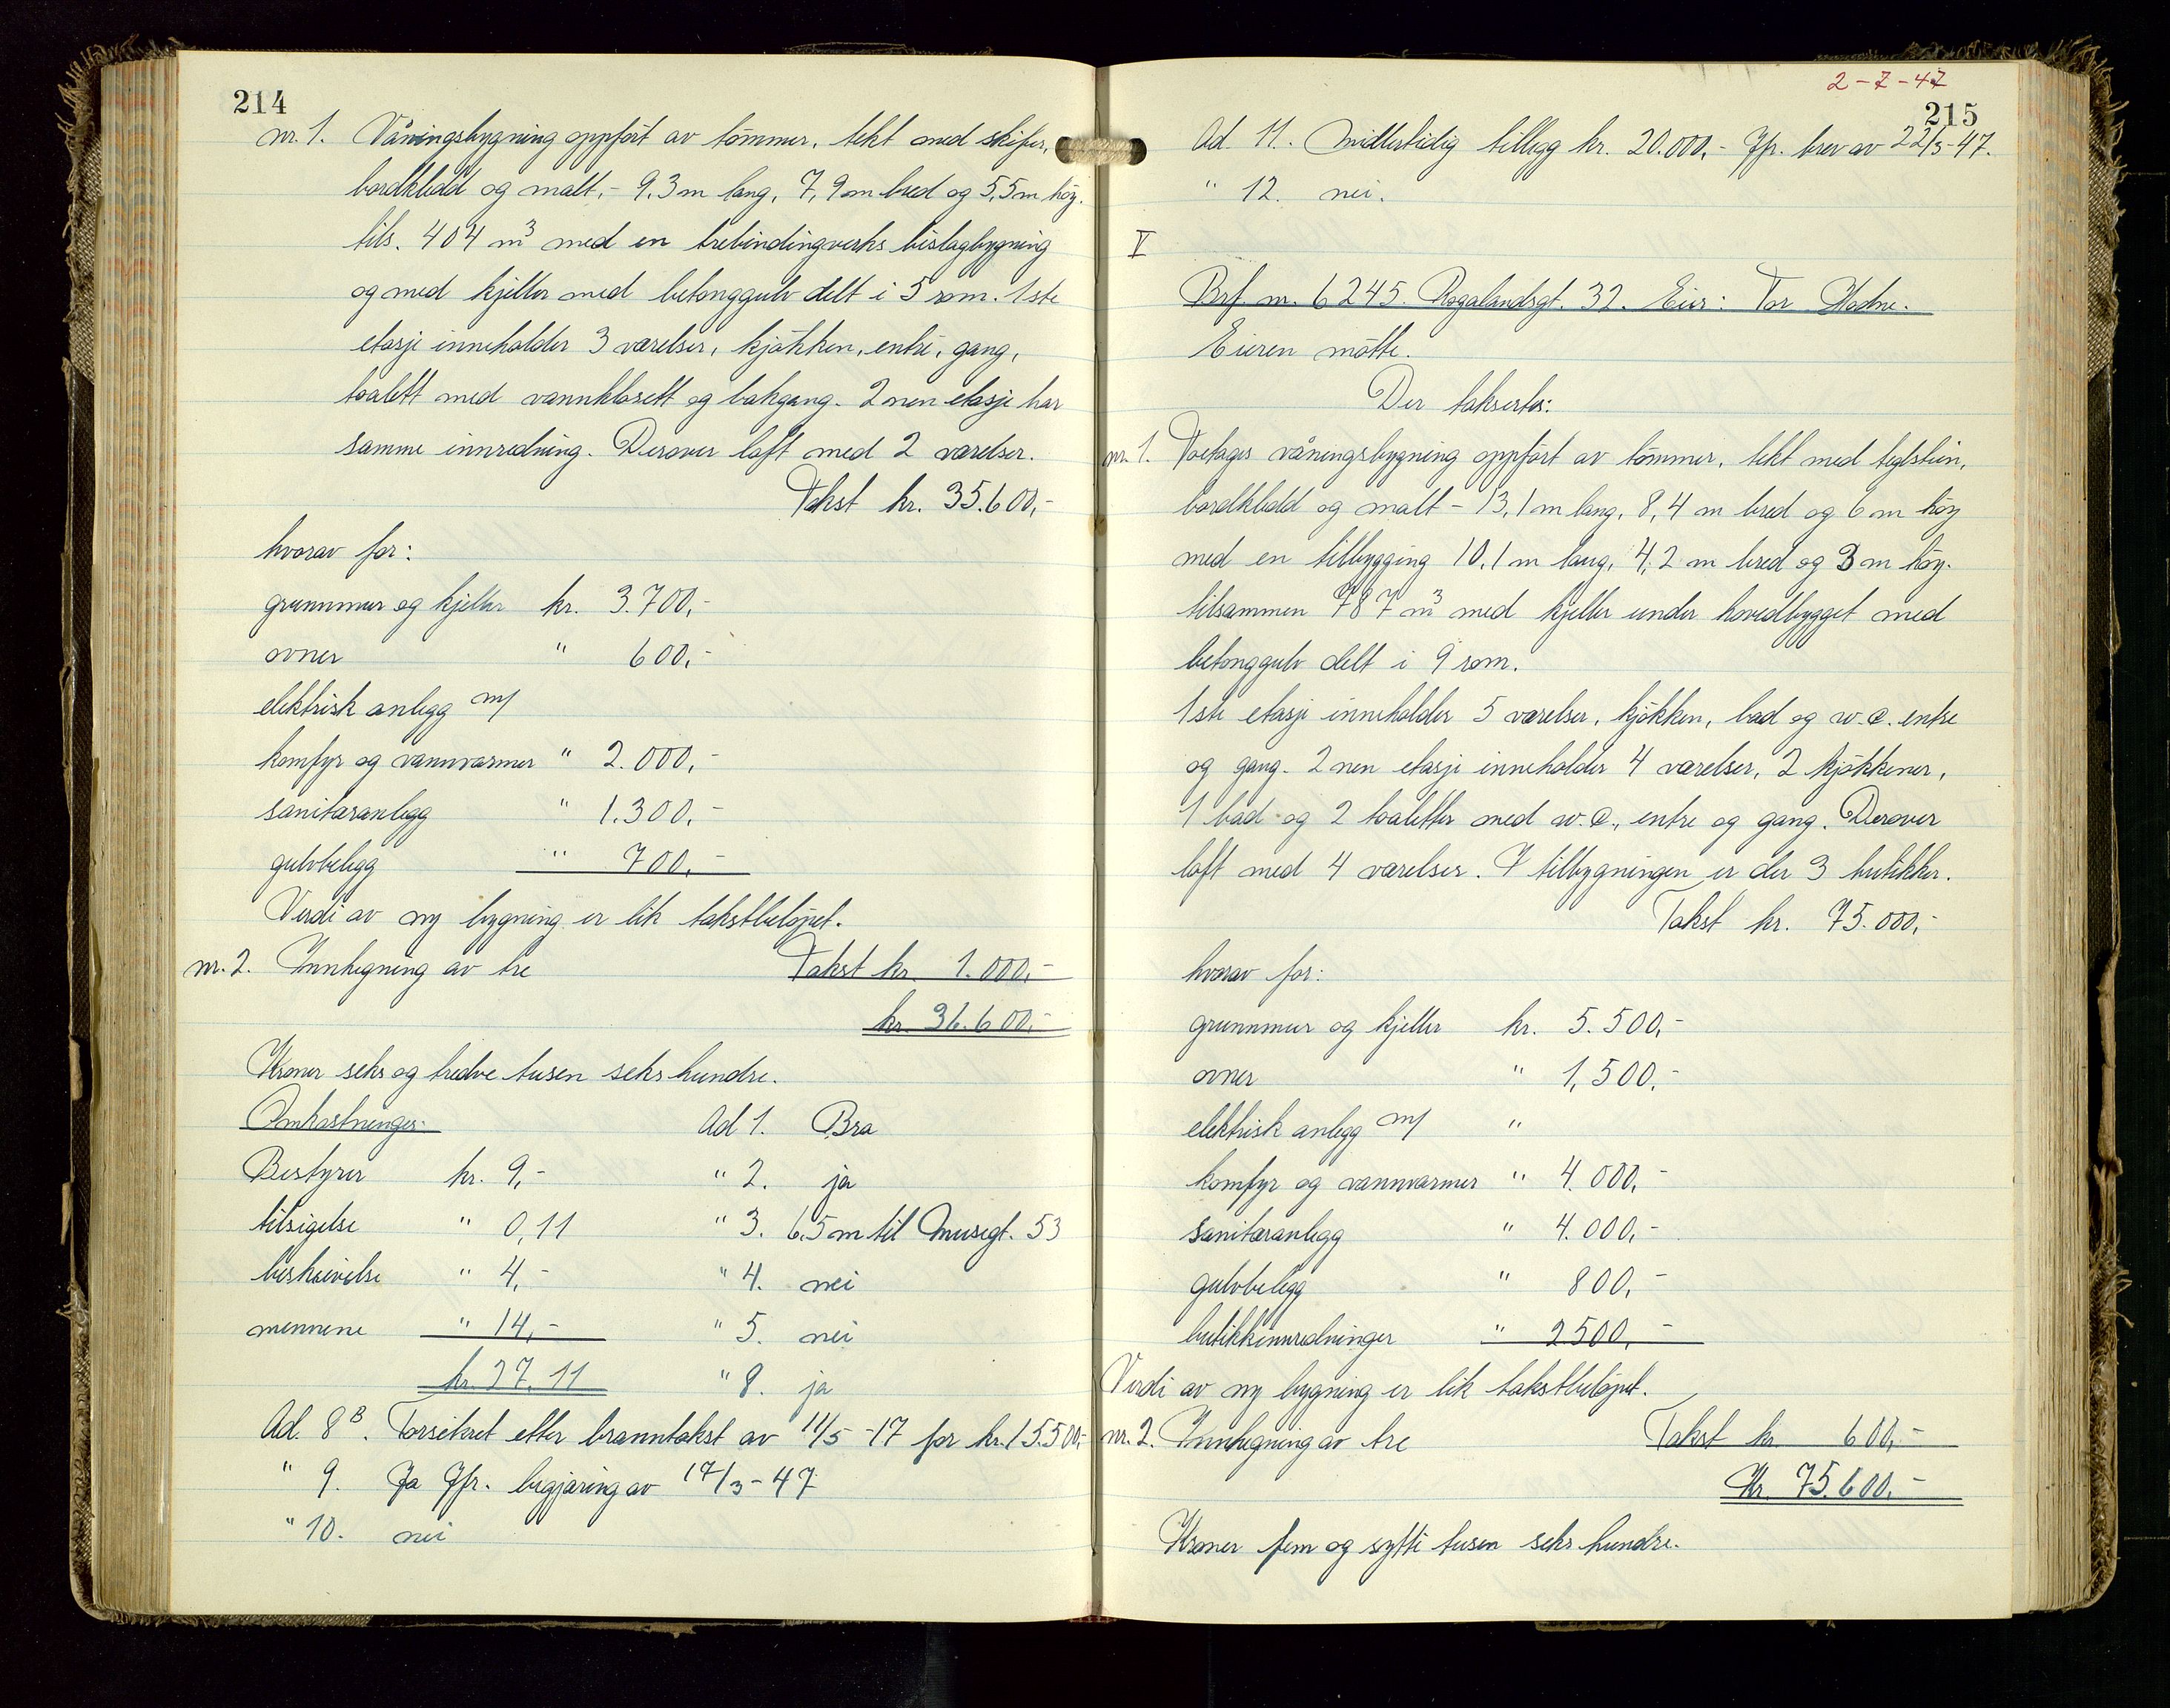 214
nr. 1. Våningsbygning oppført av tømmer, tekt med skifer,
bordkledd og malt, - 9,3 m lang, 7,9 m bred og 5,5 m høy.
tils. 404 m³ med en trebindingverks bislagbygning
og med kjeller med betonggulv delt i 5 rom. 1ste
etasje inneholder 3 værelser, kjøkken, entre, gang,
toalett med vannklosett og bakgang. 2nen etasje har
samme innredning. Derover loft med 2 værelser.
Takst kr. 35.600,-
hvorav for:
grunnmur og kjeller kr. 3.700,-
ovner " 600,-
elektrisk anlegg m/
komfyr og vannvarmer " 2.000,-
sanitæranlegg " 1.300,-
gulvbelegg " 700,-
Verdi av ny bygning er lik takstbeløpet.
nr. 2. Innhegning av tre Takst kr. 1.000,-
kr. 36.600,-
Kroner seks og tredve tusen seks hundre.
Omkostninger: Ad 1. Bra
Bestyrer kr. 9,- " 2. ja
tilsigelse " 0,11 " 3. 6,5 m til Musegt. 53
beskrivelse " 4,- " 4. nei
mennene " 14,- " 5. nei
kr. 27,11 " 8. ja
Ad. 8ᴮ. Forsikret etter branntakst av 11/5 -17 for kr. 15.500,-
" 9. Ja Jfr. begjæring av 17/3-47
" 10. nei
2-7-47
215
Ad 11. Midlertidig tillegg kr. 20.000,- Jfr. brev av 22/5-47.
" 12. nei.
V
Brf. nr. 6245. Rogalandsgt. 32. Eier: Tor Hodne.
Eieren møtte.
Der taksertes:
nr. 1. Toetages våningsbygning oppført av tømmer, tekt med teglstein,
bordkledd og malt - 13,1 m lang, 8,4 m bred og 6 m høy
med en tilbygging 10,1 m lang, 4,2 m bred og 3 m høy.
tilsammen 787 m³ med kjeller under hovedbygget med
betonggulv delt i 9 rom.
1ste etasje inneholder 5 værelser, kjøkken, bad og w.c. entre
og gang. 2nen etasje inneholder 4 værelser, 2 kjøkkener,
1 bad og 2 toaletter med w.c., entre og gang. Derover
loft med 4 værelser. I tilbygningen er der 3 butikker.
Takst kr. 75.000,-
hvorav for:
grunnmur og kjeller kr. 5.500,-
ovner " 1,500,-
elektrisk anlegg m/ "
komfyr og vannvarmer " 4.000,-
sanitæranlegg " 4.000,-
gulvbelegg " 800,-
butikkinnredninger " 2500,-
Verdi av ny bygning er lik takstbeløpet.
nr. 2. Innhegning av tre Takst kr. 600,-
Kr. 75.600,-
Kroner fem og sytti tusen seks hundre.